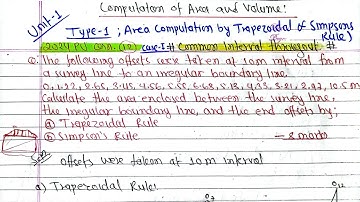 Computation of Area and Volume:
Unit-1
Type-1 ; Area computation by Trapezoidal & Simpson's Rule)
2024 PU Case-I :# Common Interval throughout #
Q. The following offsets were taken at 10m interval from
a survey line to an irregular boundary line.
0, 1.22, 2.65, 3.45, 4.56, 5.55, 6.68, 5.18, 4.95, 3.21, 2.92, 10.5m
Calculate the area enclosed between the survey line,
the irregular boundary line, and the end offsets by;
a Trapezoidal Rule
b Simpson's Rule — 8 marks
Soln
offsets were taken at 10m interval
a) Trapezoidal Rule: